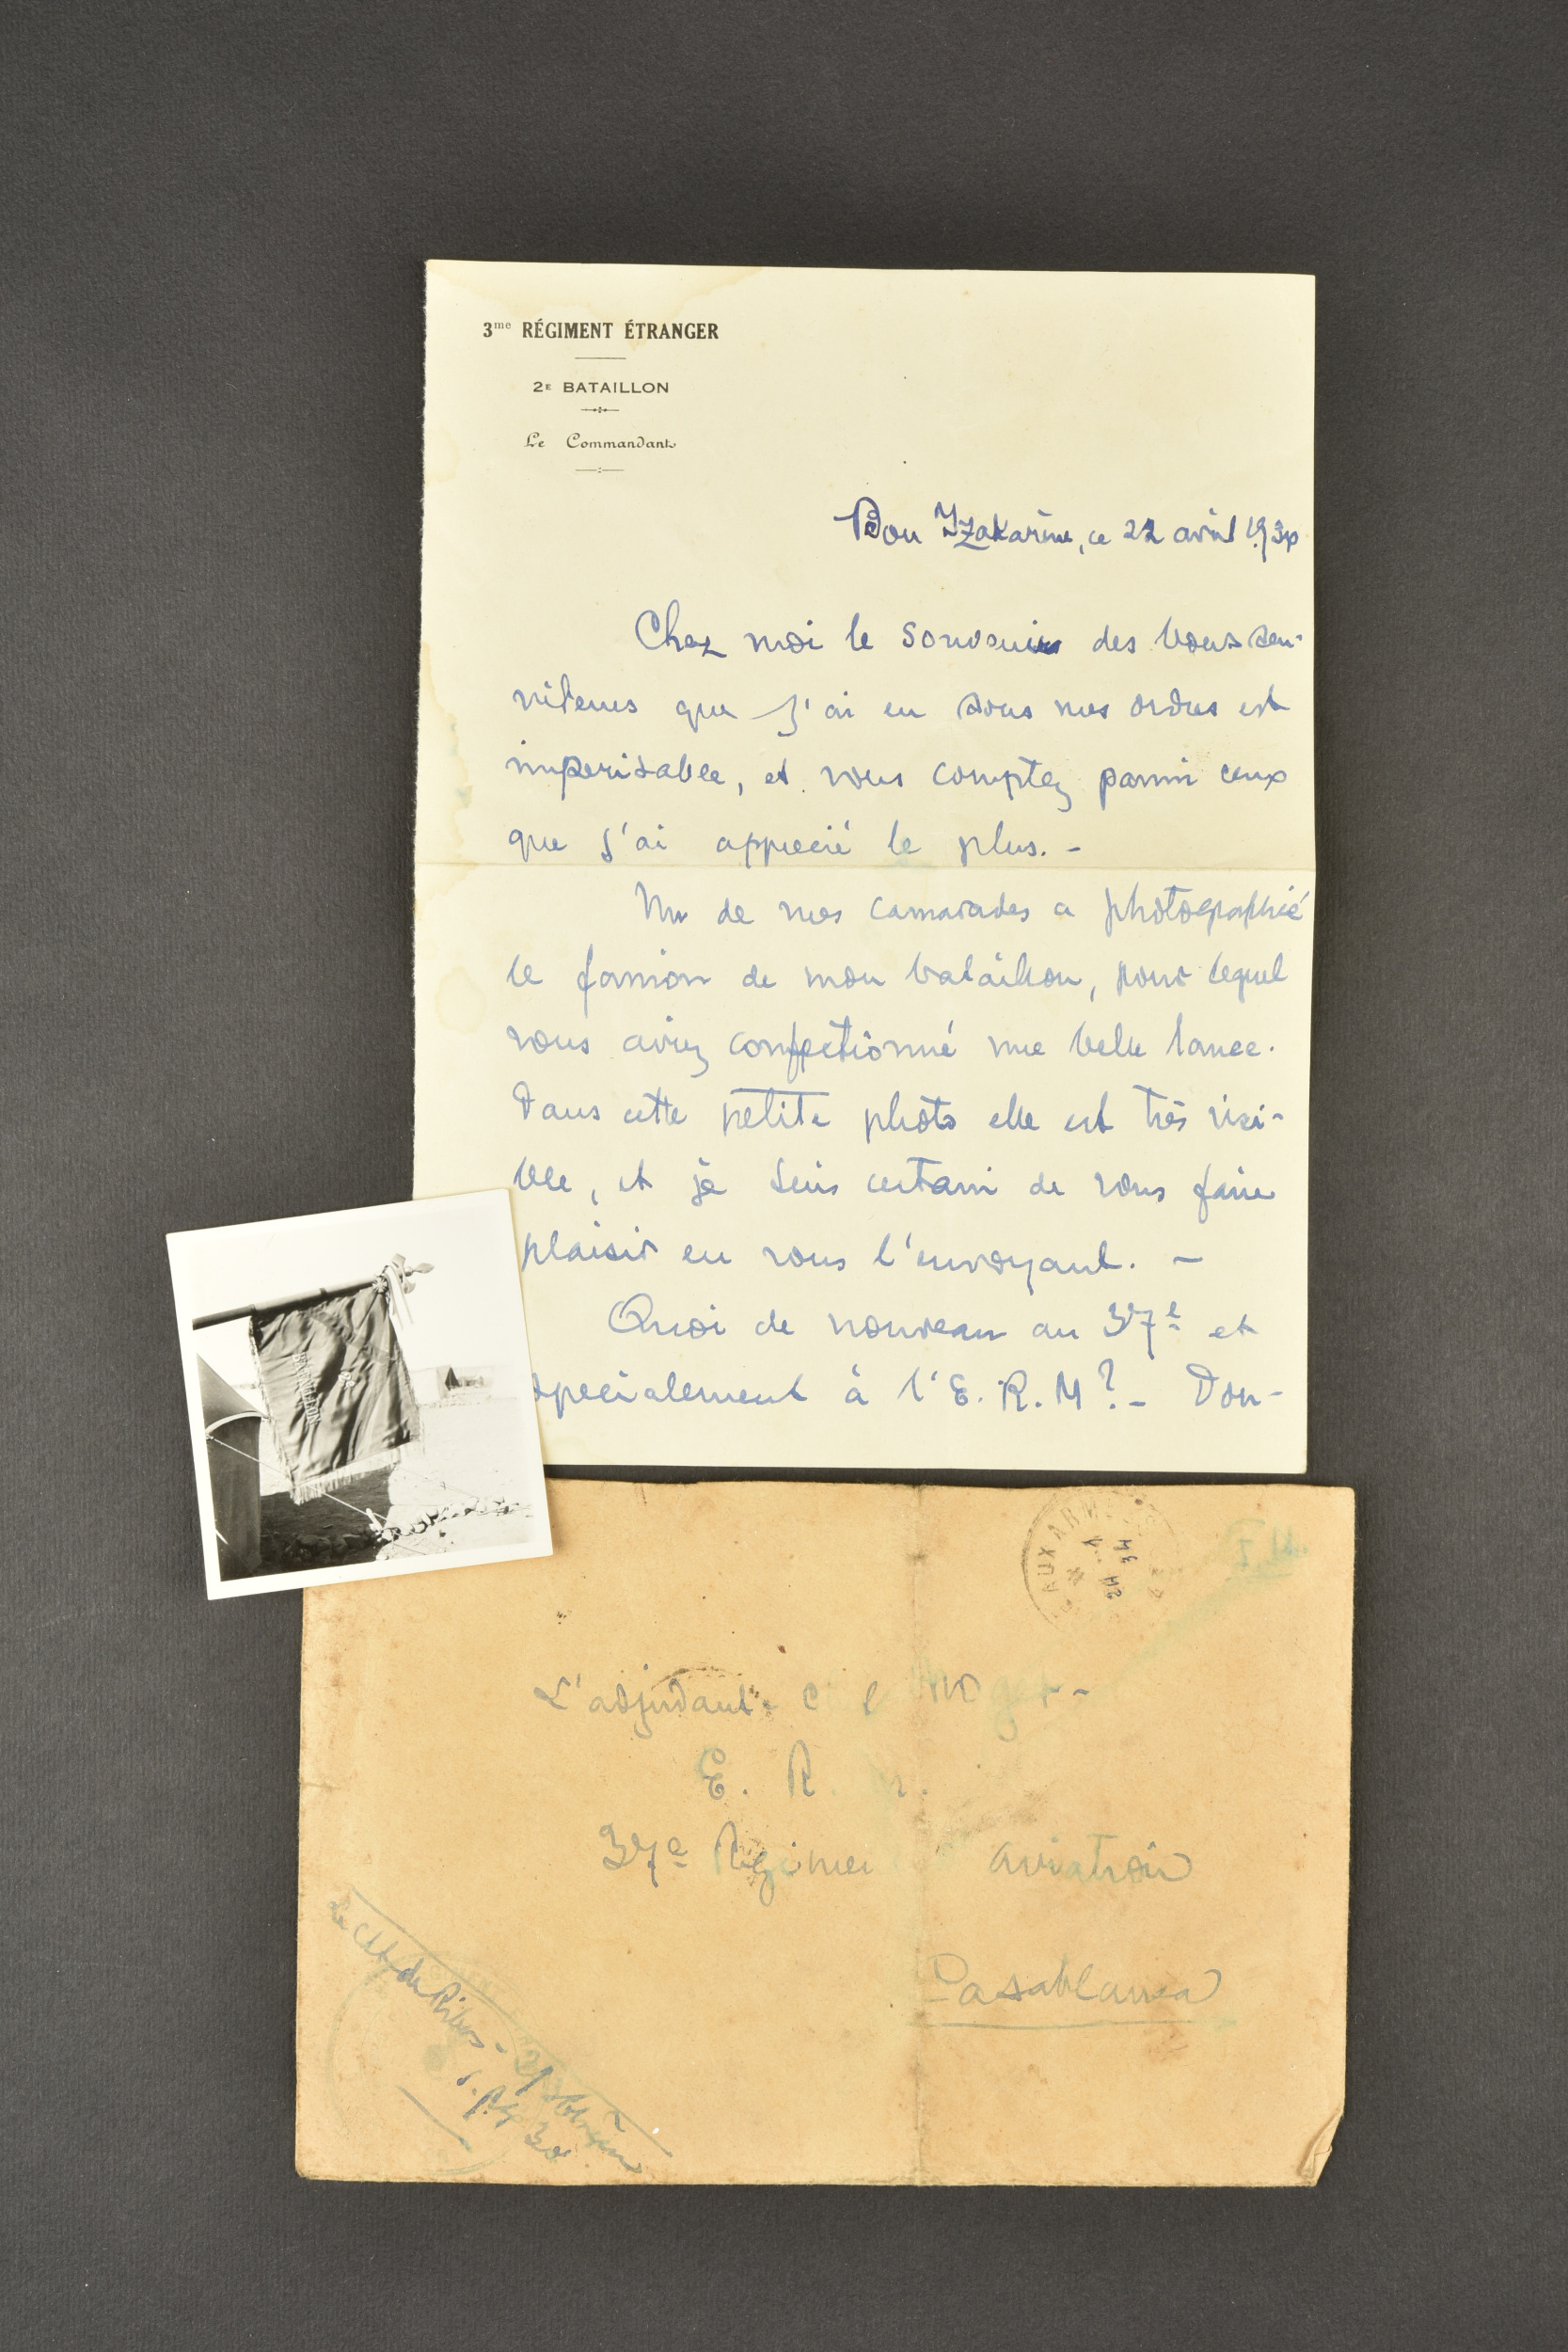 3me RÉGIMENT ÉTRANGER
2E BATAILLON
Le Commandant
Bou Yzakarène, ce 22 avril 1934
Chez moi le souvenir des bons ser-
viteurs que j'ai eu sous mes ordres est
imperisable, et vous comptez parmi ceux
que j'ai apprecié le plus. -
Un de mes camarades a photographié
le fanion de mon bataillon, pour lequel
vous aviez confectionné une belle lance.
Dans cette petite photo elle est très visi-
ble, et je suis certain de vous faire
plaisir en vous l'envoyant. -
Quoi de nouveau au 37e et
specialement à l'E.R.M? - Don-
BATAILLON
AUX ARM
24 4 34
L'adjudant
E. R.
37e Regime aviation
Casablanca
Le Cdt de